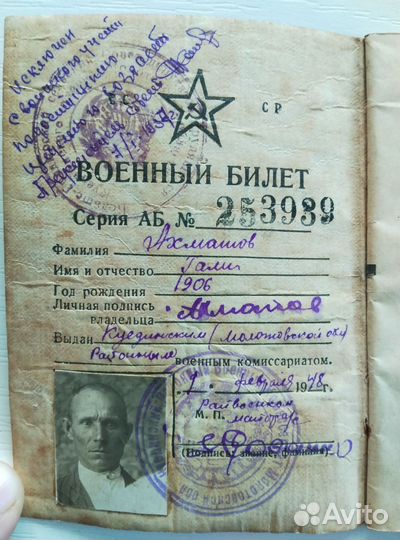 Исключен
с воинского учёта
по достижении
предельного возраста
С С СР
ВОЕННЫЙ БИЛЕТ
Серия АБ, № 253989
Фамилия Ахматов
Имя и отчество Гали
Год рождения 1906
Личная подпись
владельца Ахматов
Выдан Куединским (Молотовской обл)
Районным военным комиссариатом.
февраля 1948 г.
Райвоенком
М. П. майор
(Подпись, звание, фамилия)
Avito